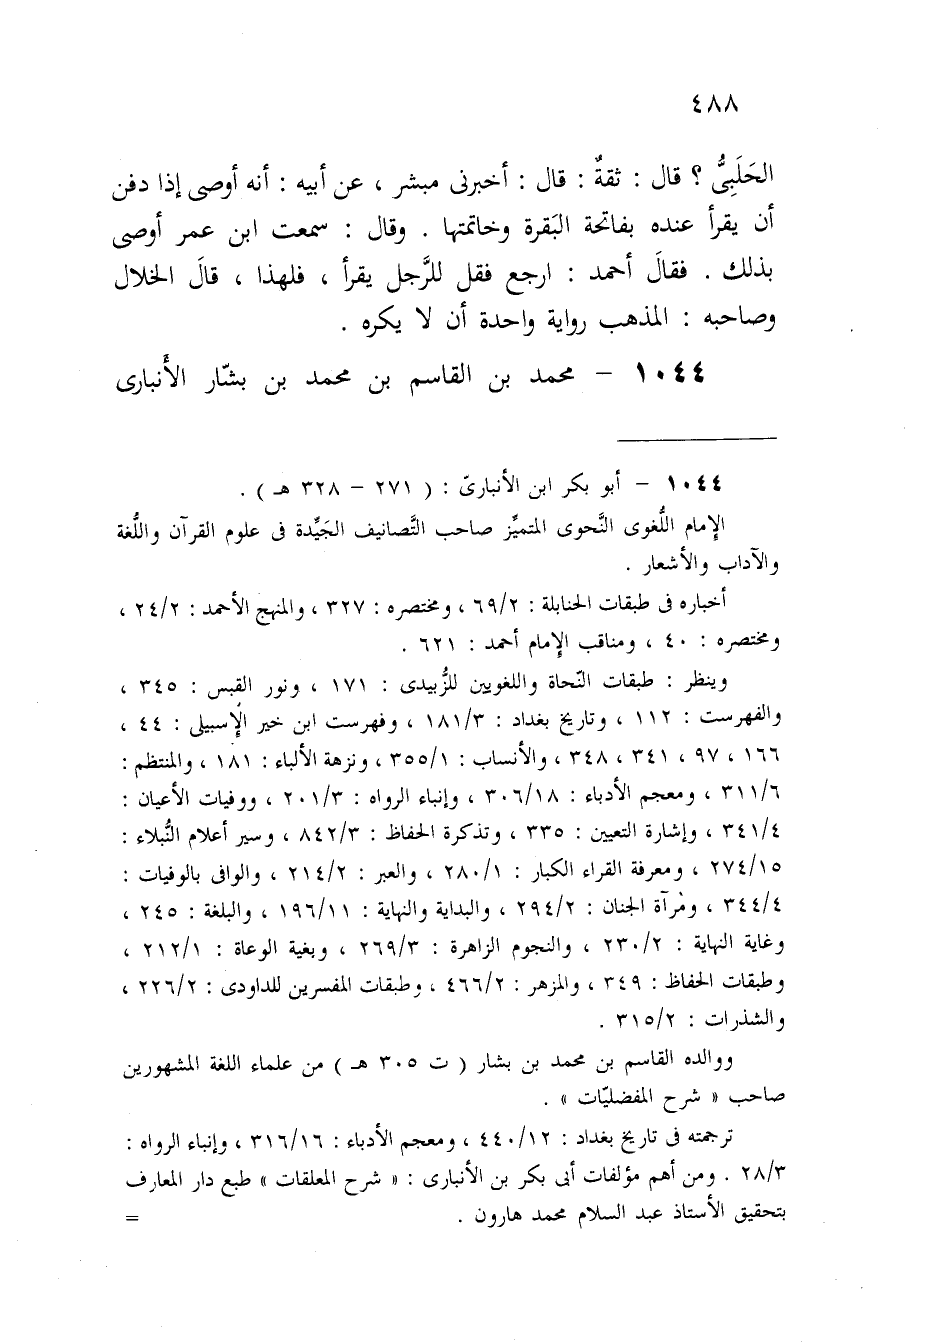 ٤٨٨
الحَلَبِىُّ ؟ قال : ثقةٌ : قال : أخبرنى مبشر ، عن أبيه : أنه أوصى إذا دفن
أن يقرأ عنده بفاتحة البَقرة وخاتمتها . وقال : سمعت ابن عمر أوصى
بذلك . فقالَ أحمد : ارجع فقل للرَّجل يقرأ ، فلهذا ، قالَ الخلال
وصاحبه : المذهب رواية واحدة أن لا يكره .
١٠٤٤ – محمد بن القاسم بن محمد بن بشّار الأَنبارى
١٠٤٤ – أبو بكر ابن الأنبارىّ : ( ٢٧١ – ٣٢٨ هـ ) .
الإمام اللُّغوى النَّحوى المتميِّز صاحب التَّصانيف الجَيِّدة فى علوم القرآن واللُّغة
والآداب والأشعار .
أخباره فى طبقات الحنابلة : ٦٩/٢ ، ومختصره : ٣٢٧ ، والمنهج الأحمد : ٢٤/٢ ،
ومختصره : ٤٠ ، ومناقب الإمام أحمد : ٦٢١ .
وينظر : طبقات النّحاة واللغويين للزُّبيدى : ١٧١ ، ونور القبس : ٣٤٥ ،
والفهرست : ١١٢ ، وتاريخ بغداد : ١٨١/٣ ، وفهرست ابن خير الإسبيلى : ٤٤ ،
١٦٦ ، ٩٧ ، ٣٤١ ، ٣٤٨ ، والأنساب : ٣٥٥/١ ، ونزهة الألباء : ١٨١ ، والمنتظم :
٣١١/٦ ، ومعجم الأدباء : ٣٠٦/١٨ ، وإنباء الرواه : ٢٠١/٣ ، ووفيات الأعيان :
٣٤١/٤ ، وإشارة التعيين : ٣٣٥ ، وتذكرة الحفاظ : ٨٤٢/٣ ، وسير أعلام النُّبلاء :
٢٧٤/١٥ ، ومعرفة القراء الكبار : ٢٨٠/١ ، والعبر : ٢١٤/٢ ، والوافى بالوفيات :
٣٤٤/٤ ، ومرآة الجنان : ٢٩٤/٢ ، والبداية والنهاية : ١٩٦/١١ ، والبلغة : ٢٤٥ ،
وغاية النهاية : ٢٣٠/٢ ، والنجوم الزاهرة : ٢٦٩/٣ ، وبغية الوعاة : ٢١٢/١ ،
وطبقات الحفاظ : ٣٤٩ ، والمزهر : ٤٦٦/٢ ، وطبقات المفسرين للداودى : ٢٢٦/٢ ،
والشذرات : ٣١٥/٢ .
ووالده القاسم بن محمد بن بشار ( ت ٣٠٥ هـ ) من علماء اللغة المشهورين
صاحب « شرح المفضليّات » .
ترجمته فى تاريخ بغداد : ٤٤٠/١٢ ، ومعجم الأدباء : ٣١٦/١٦ ، وإنباء الرواه :
٢٨/٣ . ومن أهم مؤلفات أبى بكر بن الأنبارى : « شرح المعلقات » طبع دار المعارف
بتحقيق الأستاذ عبد السلام محمد هارون . =